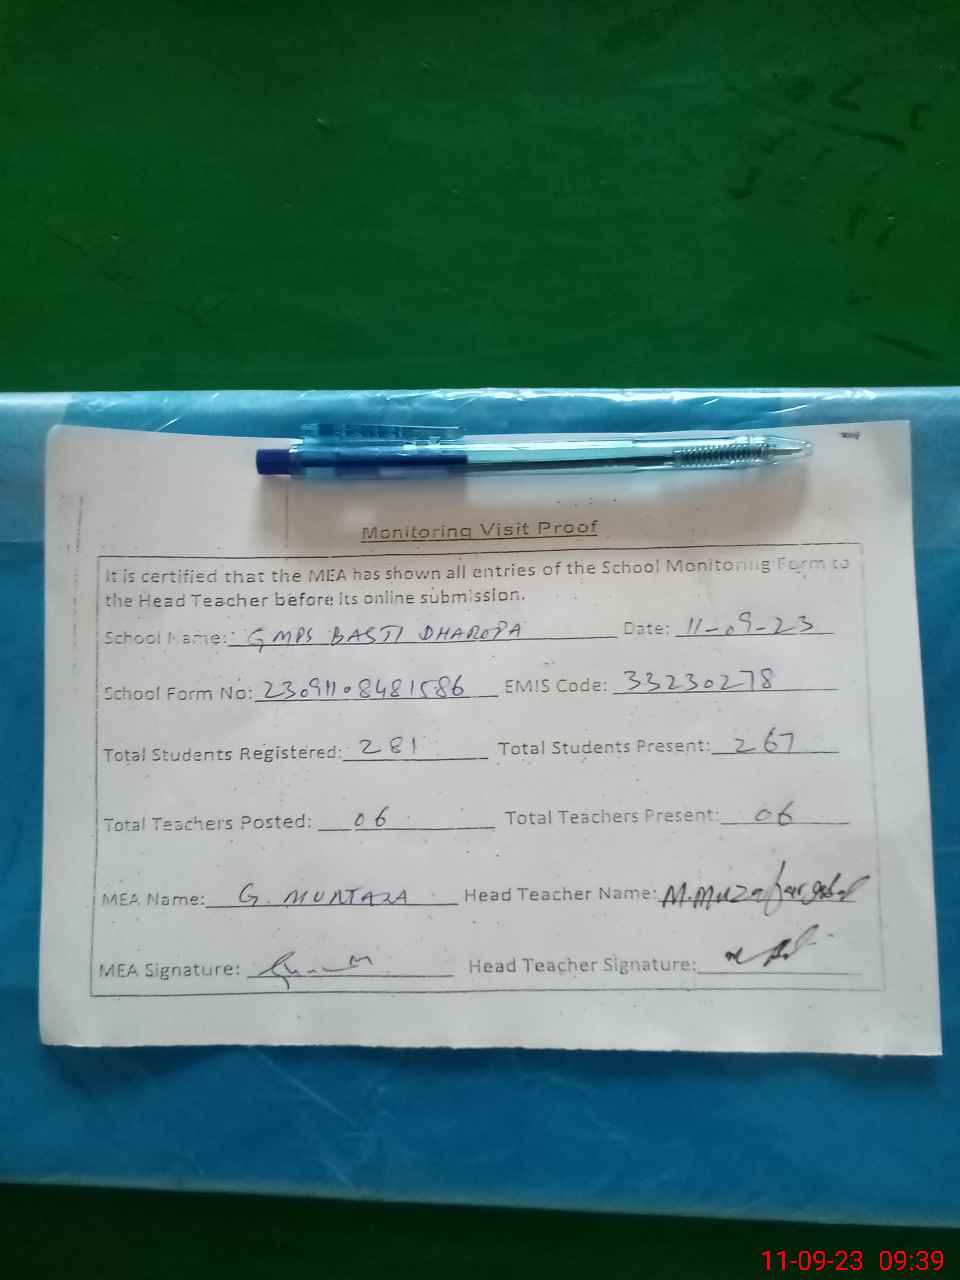 Monitoring Visit Proof
It is certified that the MEA has shown all entries of the School Monitoring Form to
the Head Teacher before its online submission.
School Name: GMPS BASTI DHAROPA Date: 11-09-23
School Form No: 23091108481586 EMIS Code: 33230278
Total Students Registered: 281 Total Students Present: 267
Total Teachers Posted: 06 Total Teachers Present: 06
MEA Name: G. MURTAZA Head Teacher Name: M.Muzafar
MEA Signature: Head Teacher Signature:
11-09-23 09:39